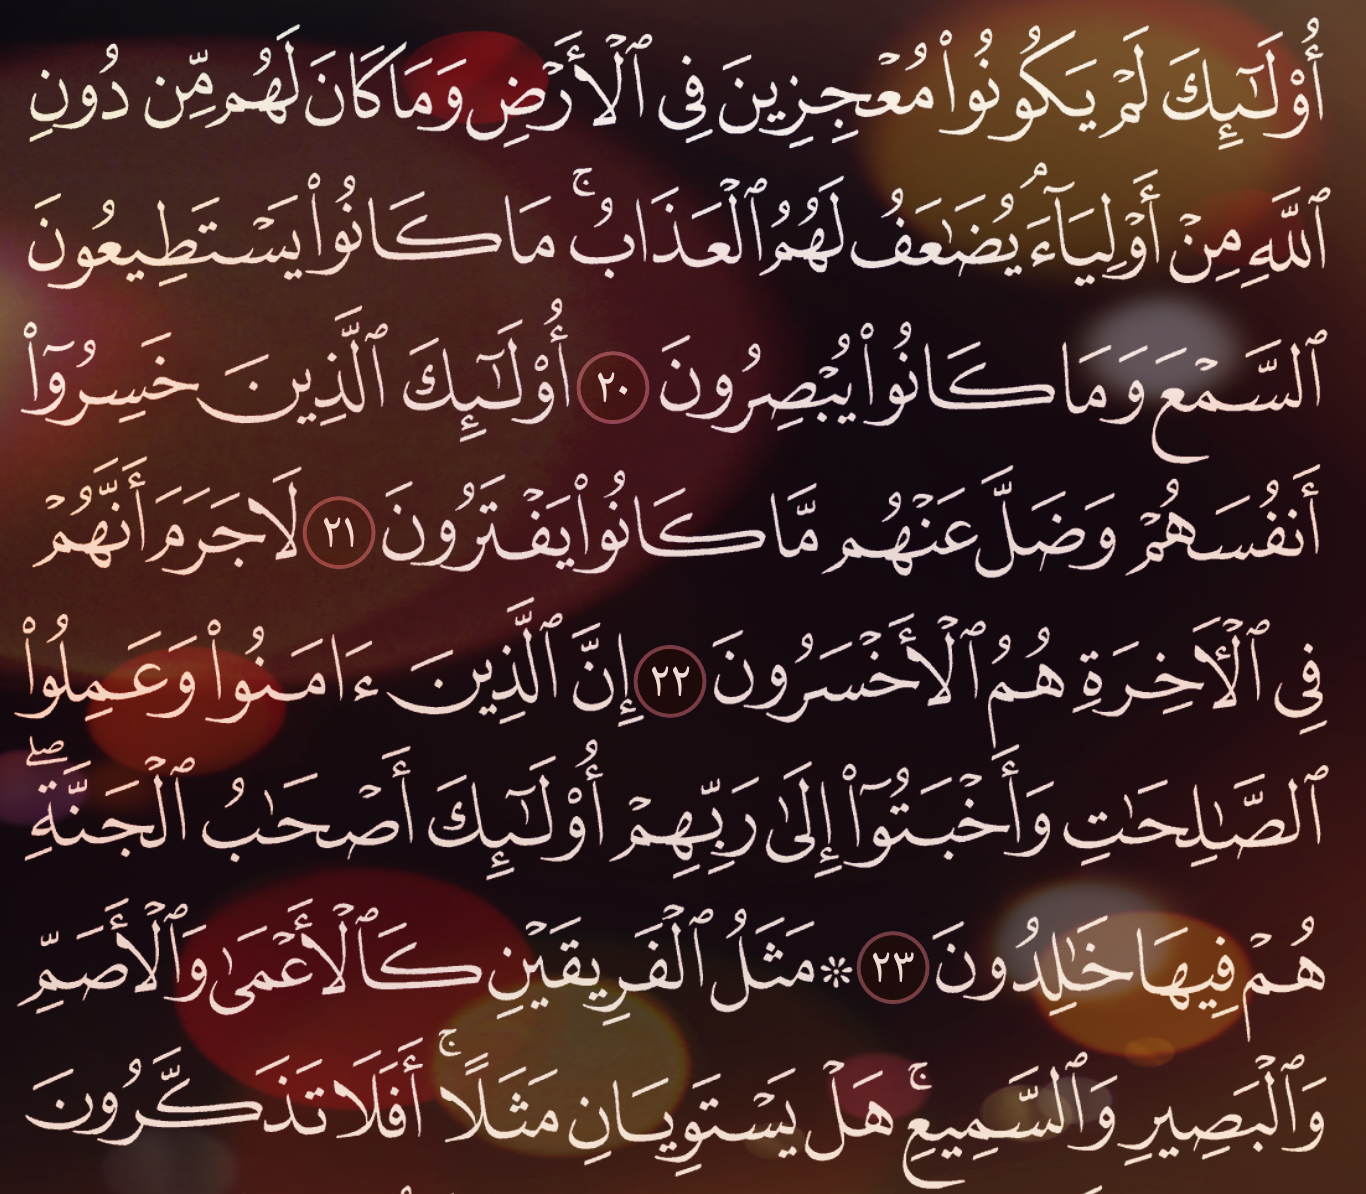 أُو۟لَـٰٓئِكَ لَمْ يَكُونُوا۟ مُعْجِزِينَ فِى ٱلْأَرْضِ وَمَا كَانَ لَهُم مِّن دُونِ
ٱللَّهِ مِنْ أَوْلِيَآءَ ۘ يُضَـٰعَفُ لَهُمُ ٱلْعَذَابُ ۚ مَا كَانُوا۟ يَسْتَطِيعُونَ
ٱلسَّمْعَ وَمَا كَانُوا۟ يُبْصِرُونَ ٢٠ أُو۟لَـٰٓئِكَ ٱلَّذِينَ خَسِرُوٓا۟
أَنفُسَهُمْ وَضَلَّ عَنْهُم مَّا كَانُوا۟ يَفْتَرُونَ ٢١ لَا جَرَمَ أَنَّهُمْ
فِى ٱلْـَٔاخِرَةِ هُمُ ٱلْأَخْسَرُونَ ٢٢ إِنَّ ٱلَّذِينَ ءَامَنُوا۟ وَعَمِلُوا۟
ٱلصَّـٰلِحَـٰتِ وَأَخْبَتُوٓا۟ إِلَىٰ رَبِّهِمْ أُو۟لَـٰٓئِكَ أَصْحَـٰبُ ٱلْجَنَّةِ ۖ
هُمْ فِيهَا خَـٰلِدُونَ ٢٣ ۞ مَثَلُ ٱلْفَرِيقَيْنِ كَٱلْأَعْمَىٰ وَٱلْأَصَمِّ
وَٱلْبَصِيرِ وَٱلسَّمِيعِ ۚ هَلْ يَسْتَوِيَانِ مَثَلًا ۚ أَفَلَا تَذَكَّرُونَ